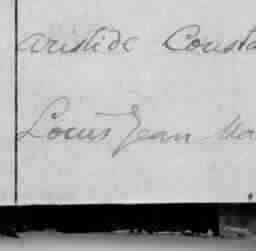 Aristide Consta
Louis Jean Ma